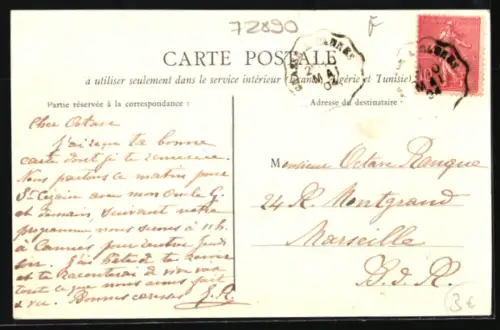 72890
F
CARTE POSTALE
a utiliser seulement dans le service intérieur (France, Algérie et Tunisie)
Partie réservée à la correspondance :
Adresse du destinataire
MAI
Cher Octave
J'ai reçu ta bonne
carte dont je te remercie.
Nous partons ce matin pour
St Cézaire avec mon Oncle G.
et demain, suivant notre
programme nous serons à 11 h.
à Cannes pour rentrer jeudi
soir. J'ai hâte de te revoir
et te raconterai de vive voix
tout ce que nous avons fait
et vu. Bonnes caresses
Monsieur Octave Ranque
24 R. Montgrand
Marseille
B. d. R.
3€